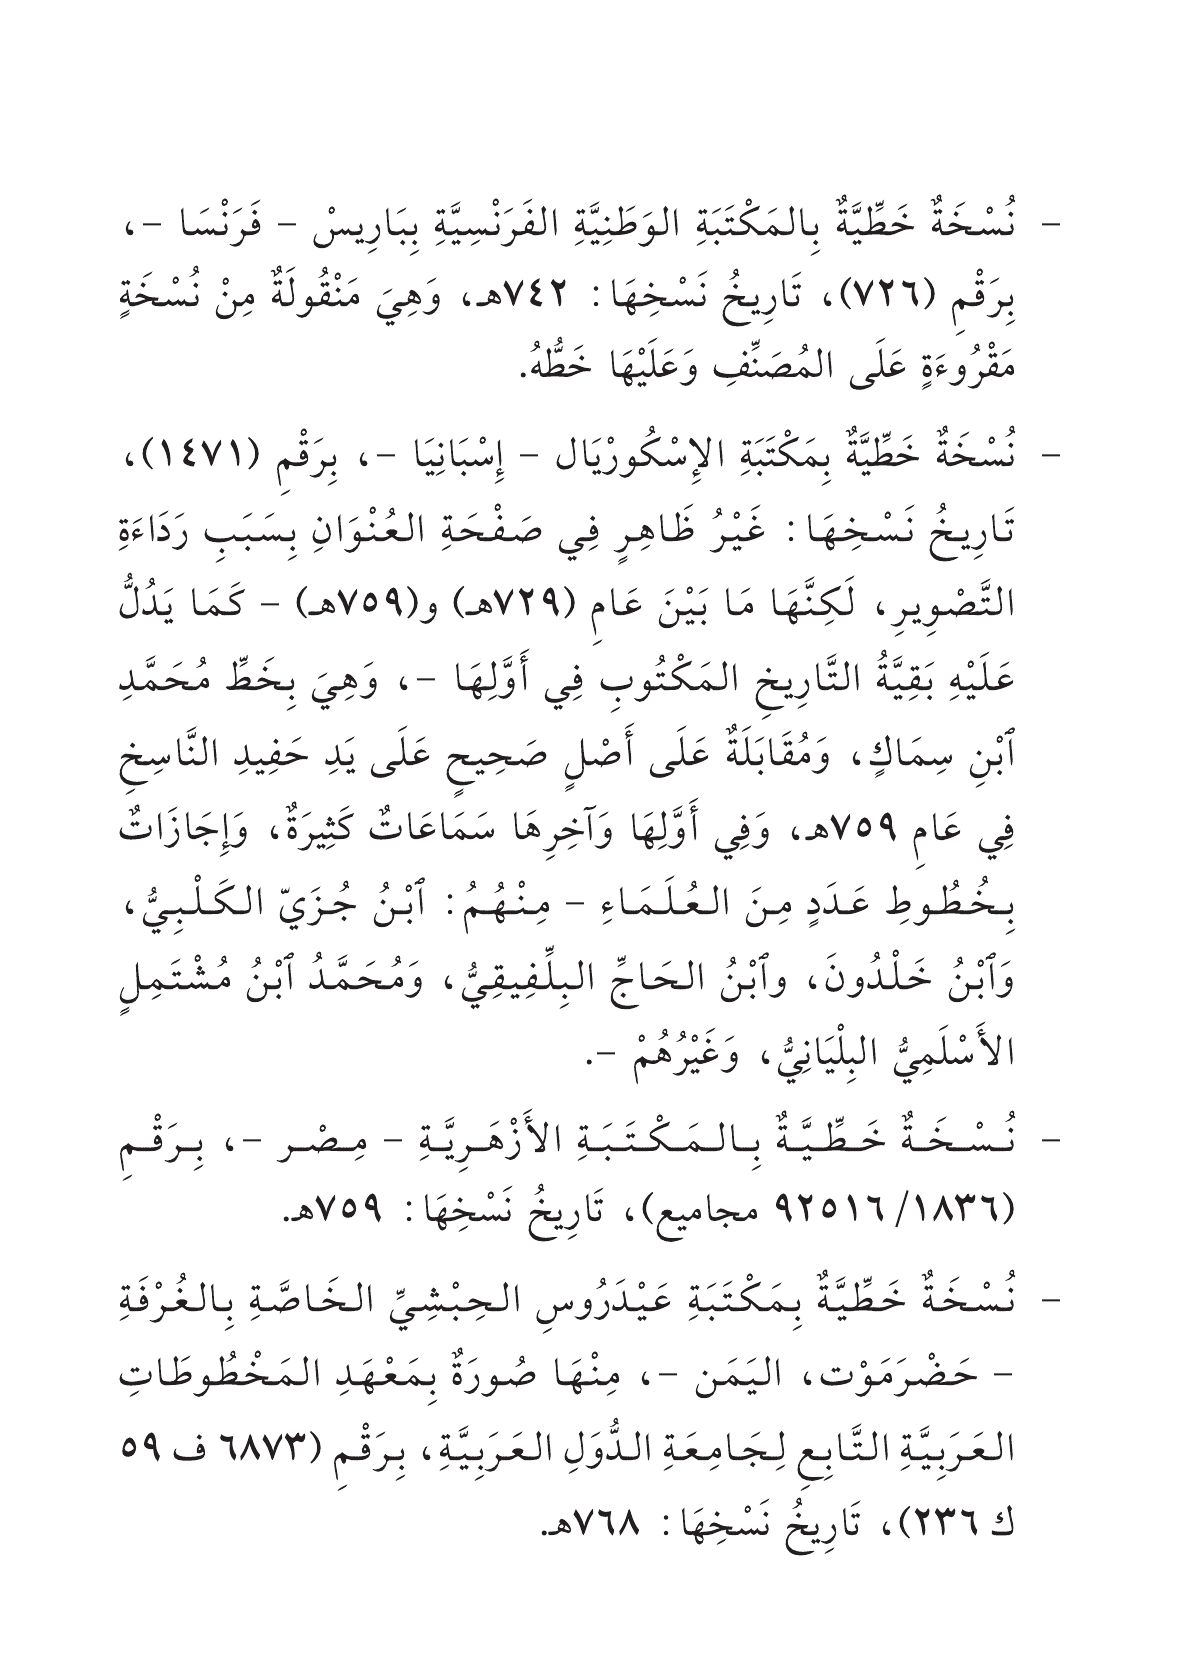 – نُسْخَةٌ خَطِّيَّةٌ بِالمَكْتَبَةِ الوَطَنِيَّةِ الفَرَنْسِيَّةِ بِبَارِيسْ – فَرَنْسَا –،
بِرَقْمِ (٧٢٦)، تَارِيخُ نَسْخِهَا: ٧٤٢هـ، وَهِيَ مَنْقُولَةٌ مِنْ نُسْخَةٍ
مَقْرُوءَةٍ عَلَى المُصَنِّفِ وَعَلَيْهَا خَطُّهُ.
– نُسْخَةٌ خَطِّيَّةٌ بِمَكْتَبَةِ الإِسْكُورْيَال – إِسْبَانِيَا –، بِرَقْمِ (١٤٧١)،
تَارِيخُ نَسْخِهَا: غَيْرُ ظَاهِرٍ فِي صَفْحَةِ العُنْوَانِ بِسَبَبِ رَدَاءَةِ
التَّصْوِيرِ، لَكِنَّهَا مَا بَيْنَ عَامِ (٧٢٩هـ) و(٧٥٩هـ) – كَمَا يَدُلُّ
عَلَيْهِ بَقِيَّةُ التَّارِيخِ المَكْتُوبِ فِي أَوَّلِهَا –، وَهِيَ بِخَطِّ مُحَمَّدِ
ٱبْنِ سِمَاكٍ، وَمُقَابَلَةٌ عَلَى أَصْلٍ صَحِيحٍ عَلَى يَدِ حَفِيدِ النَّاسِخِ
فِي عَامِ ٧٥٩هـ، وَفِي أَوَّلِهَا وَآخِرِهَا سَمَاعَاتٌ كَثِيرَةٌ، وَإِجَازَاتٌ
بِخُطُوطِ عَدَدٍ مِنَ العُلَمَاءِ – مِنْهُمُ: ٱبْنُ جُزَيّ الكَلْبِيُّ،
وَٱبْنُ خَلْدُونَ، وٱبْنُ الحَاجِّ البِلِّفِيقِيُّ، وَمُحَمَّدُ ٱبْنُ مُشْتَمِلٍ
الأَسْلَمِيُّ البِلْيَانِيُّ، وَغَيْرُهُمْ –.
– نُسْخَةٌ خَطِّيَّةٌ بِالمَكْتَبَةِ الأَزْهَرِيَّةِ – مِصْر –، بِرَقْمِ
(١٨٣٦/ ٩٢٥١٦ مجاميع)، تَارِيخُ نَسْخِهَا: ٧٥٩هـ.
– نُسْخَةٌ خَطِّيَّةٌ بِمَكْتَبَةِ عَيْدَرُوسِ الحِبْشِيِّ الخَاصَّةِ بِالغُرْفَةِ
– حَضْرَمَوْت، اليَمَن –، مِنْهَا صُورَةٌ بِمَعْهَدِ المَخْطُوطَاتِ
العَرَبِيَّةِ التَّابِعِ لِجَامِعَةِ الدُّوَلِ العَرَبِيَّةِ، بِرَقْمِ (٦٨٧٣ ف ٥٩
ك ٢٣٦)، تَارِيخُ نَسْخِهَا: ٧٦٨هـ.